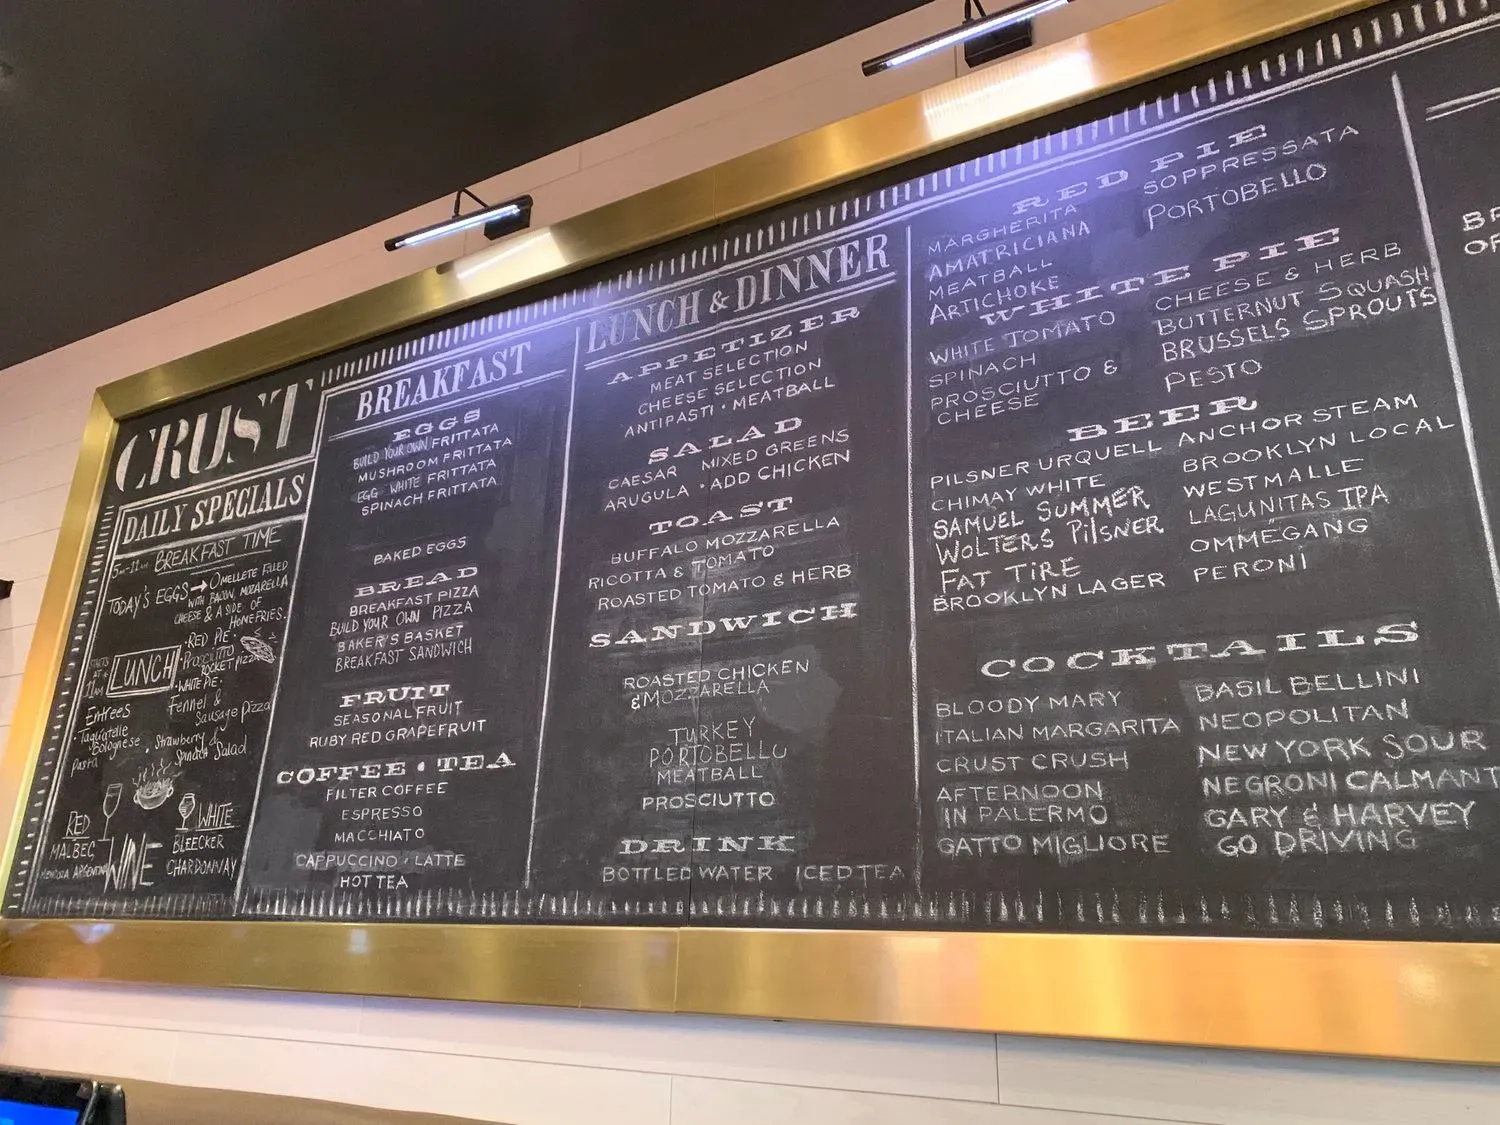 CRUST
DAILY SPECIALS
BREAKFAST TIME
TODAY'S EGGS → OMELLETE FILLED
WITH BACON, MOZARELLA
CHEESE & A SIDE OF
HOME FRIES.
STARTS
AT
11AM
LUNCH
• RED PIE •
PROSCIUTTO
ROCKET PIZZA
• WHITE PIE •
Fennel &
Sausage Pizza
Entrees
Bolognese
Pasta
• Strawberry &
Spinach Salad
RED
MALBEC
WINE
WHITE
BLEECKER
CHARDONNAY
BREAKFAST
EGGS
BUILD YOUR OWN FRITTATA
MUSHROOM FRITTATA
EGG WHITE FRITTATA
SPINACH FRITTATA
BAKED EGGS
BREAD
BREAKFAST PIZZA
BUILD YOUR OWN PIZZA
BAKER'S BASKET
BREAKFAST SANDWICH
FRUIT
SEASONAL FRUIT
RUBY RED GRAPEFRUIT
COFFEE • TEA
FILTER COFFEE
ESPRESSO
MACCHIATO
CAPPUCCINO • LATTE
HOT TEA
LUNCH & DINNER
APPETIZER
MEAT SELECTION
CHEESE SELECTION
ANTIPASTI • MEATBALL
SALAD
CAESAR MIXED GREENS
ARUGULA • ADD CHICKEN
TOAST
BUFFALO MOZZARELLA
RICOTTA & TOMATO
ROASTED TOMATO & HERB
SANDWICH
ROASTED CHICKEN
& MOZZARELLA
TURKEY
PORTOBELLO
MEATBALL
PROSCIUTTO
DRINK
BOTTLED WATER ICED TEA
RED PIE
MARGHERITA
AMATRICIANA
MEATBALL
ARTICHOKE
SOPPRESSATA
PORTOBELLO
WHITE PIE
WHITE TOMATO
SPINACH
PROSCIUTTO &
CHEESE
CHEESE & HERB
BUTTERNUT SQUASH
BRUSSELS SPROUTS
PESTO
BEER
PILSNER URQUELL
CHIMAY WHITE
SAMUEL SUMMER
WOLTERS PILSNER
FAT TIRE
BROOKLYN LAGER
ANCHOR STEAM
BROOKLYN LOCAL
WESTMALLE
LAGUNITAS IPA
OMMEGANG
PERONI
COCKTAILS
BLOODY MARY
ITALIAN MARGARITA
CRUST CRUSH
AFTERNOON
IN PALERMO
GATTO MIGLIORE
BASIL BELLINI
NEOPOLITAN
NEW YORK SOUR
NEGRONI CALMANT
GARY & HARVEY
GO DRIVING